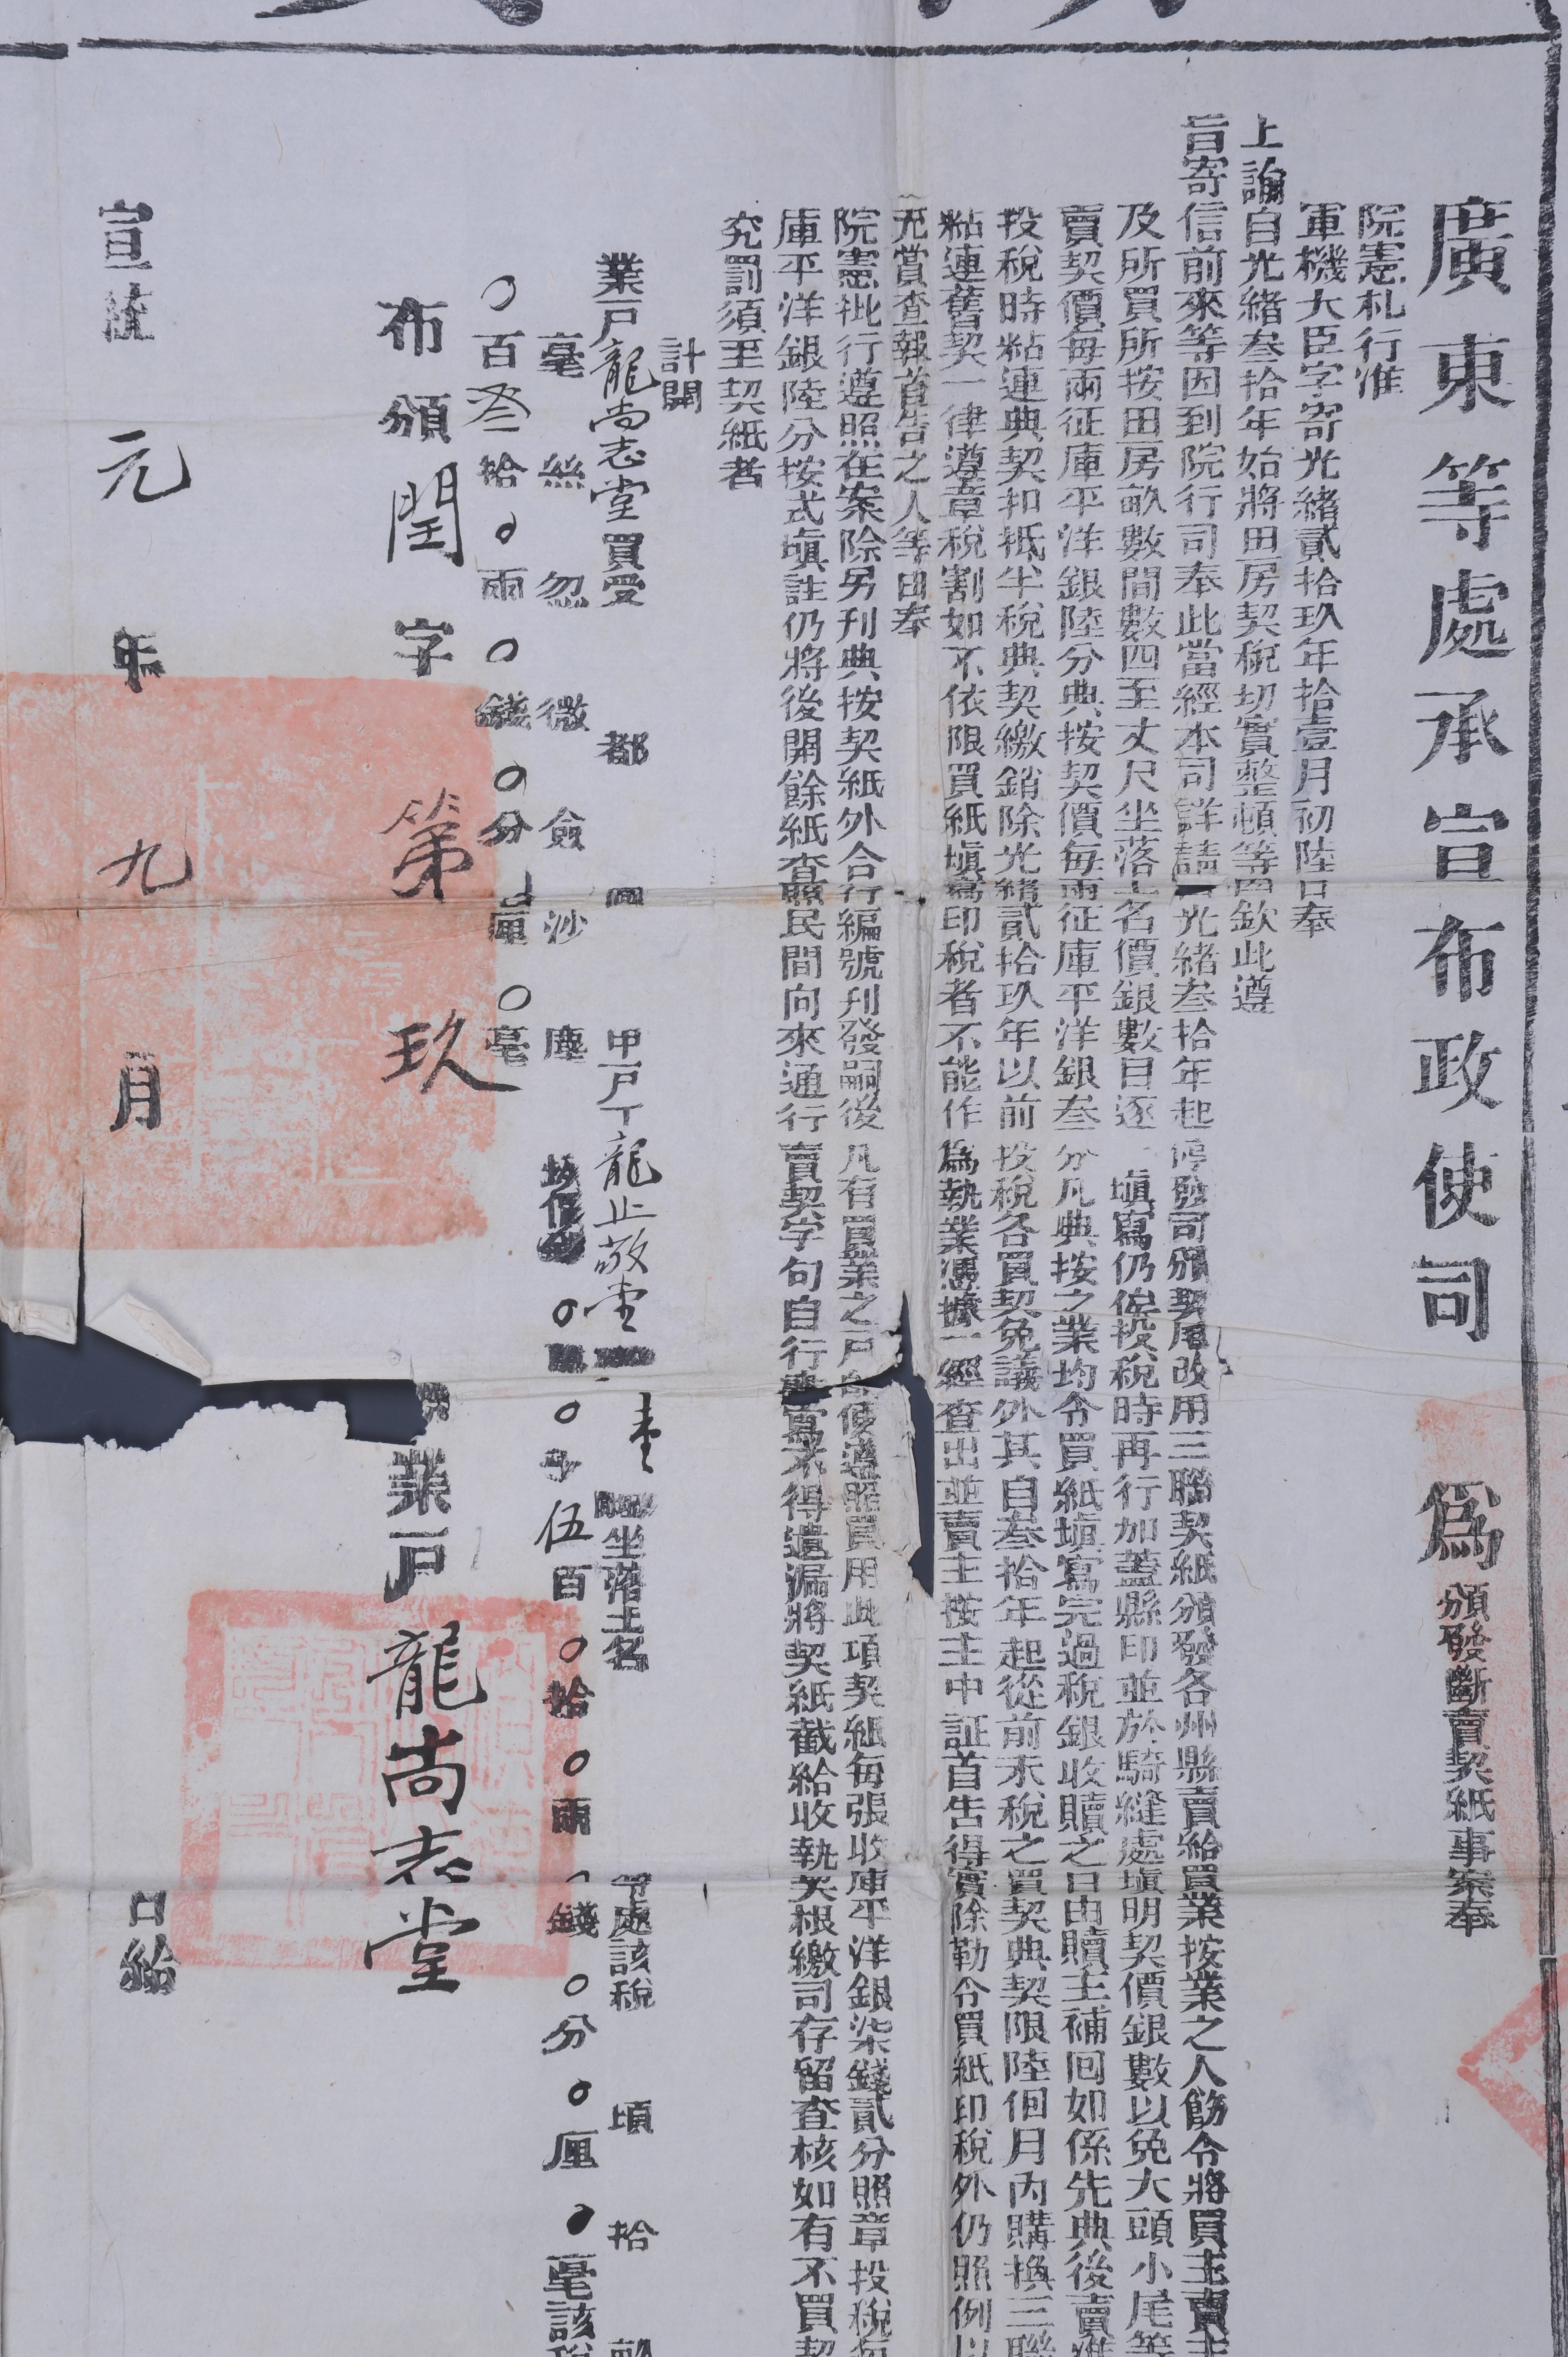 廣東等處承宣布政使司 爲 頒發斷賣契紙事案奉
院憲札行准
軍機大臣字寄光緒貳拾玖年拾壹月初陸日奉
上諭自光緒叁拾年始將田房契稅切實整頓等因欽此遵
旨寄信前來等因到院行司奉此當經本司詳請光緒叁拾年起停發司頒契尾改用三聯契紙頒發各州縣賣給買業按業之人飭令將買主賣主
及所買所按田房畝數間數四至丈尺坐落土名價銀數目逐一塡寫仍俟投稅時再行加蓋縣印並於騎縫處塡明契價銀數以免大頭小尾等
賣契價每兩征庫平洋銀陸分典按契價每兩征庫平洋銀叁分凡典按之業均令買紙塡寫完過稅銀收贖之日由贖主補囘如係先典後賣准
投稅時粘連典契扣抵半稅典契繳銷除光緒貳拾玖年以前投稅各買契免議外其自叁拾年起從前未稅之買契典契限陸個月內購換三聯
粘連舊契一律遵章稅割如不依限買紙塡寫印稅者不能作爲執業憑據一經查出並賣主按主中証首告得實除勒令買紙印稅外仍照例以
充賞查報首告之人等由奉
院憲批行遵照在案除另刋典按契紙外合行編號刋發嗣後凡有買業之戶即便遵照買用此項契紙每張收庫平洋銀柒錢貳分照章投稅每
庫平洋銀陸分按式塡註仍將後開餘紙查照民間向來通行賣契字句自行書寫不得遺漏將契紙截給收執契根繳司存留查核如有不買契
究罰須至契紙者
計開
業戶龍尚志堂買受 都 圖 甲戶丁龍止敬堂 坐落土名 等處該稅 頃 拾 畝
毫 絲 忽 微 僉 沙 塵 塲價 〇 〇千伍百〇拾〇兩〇錢〇分〇厘〇毫該稅
〇百叁拾〇兩〇錢〇分 厘〇毫
布頒閏字第玖 業戶龍尚志堂
宣統元年九月 日給